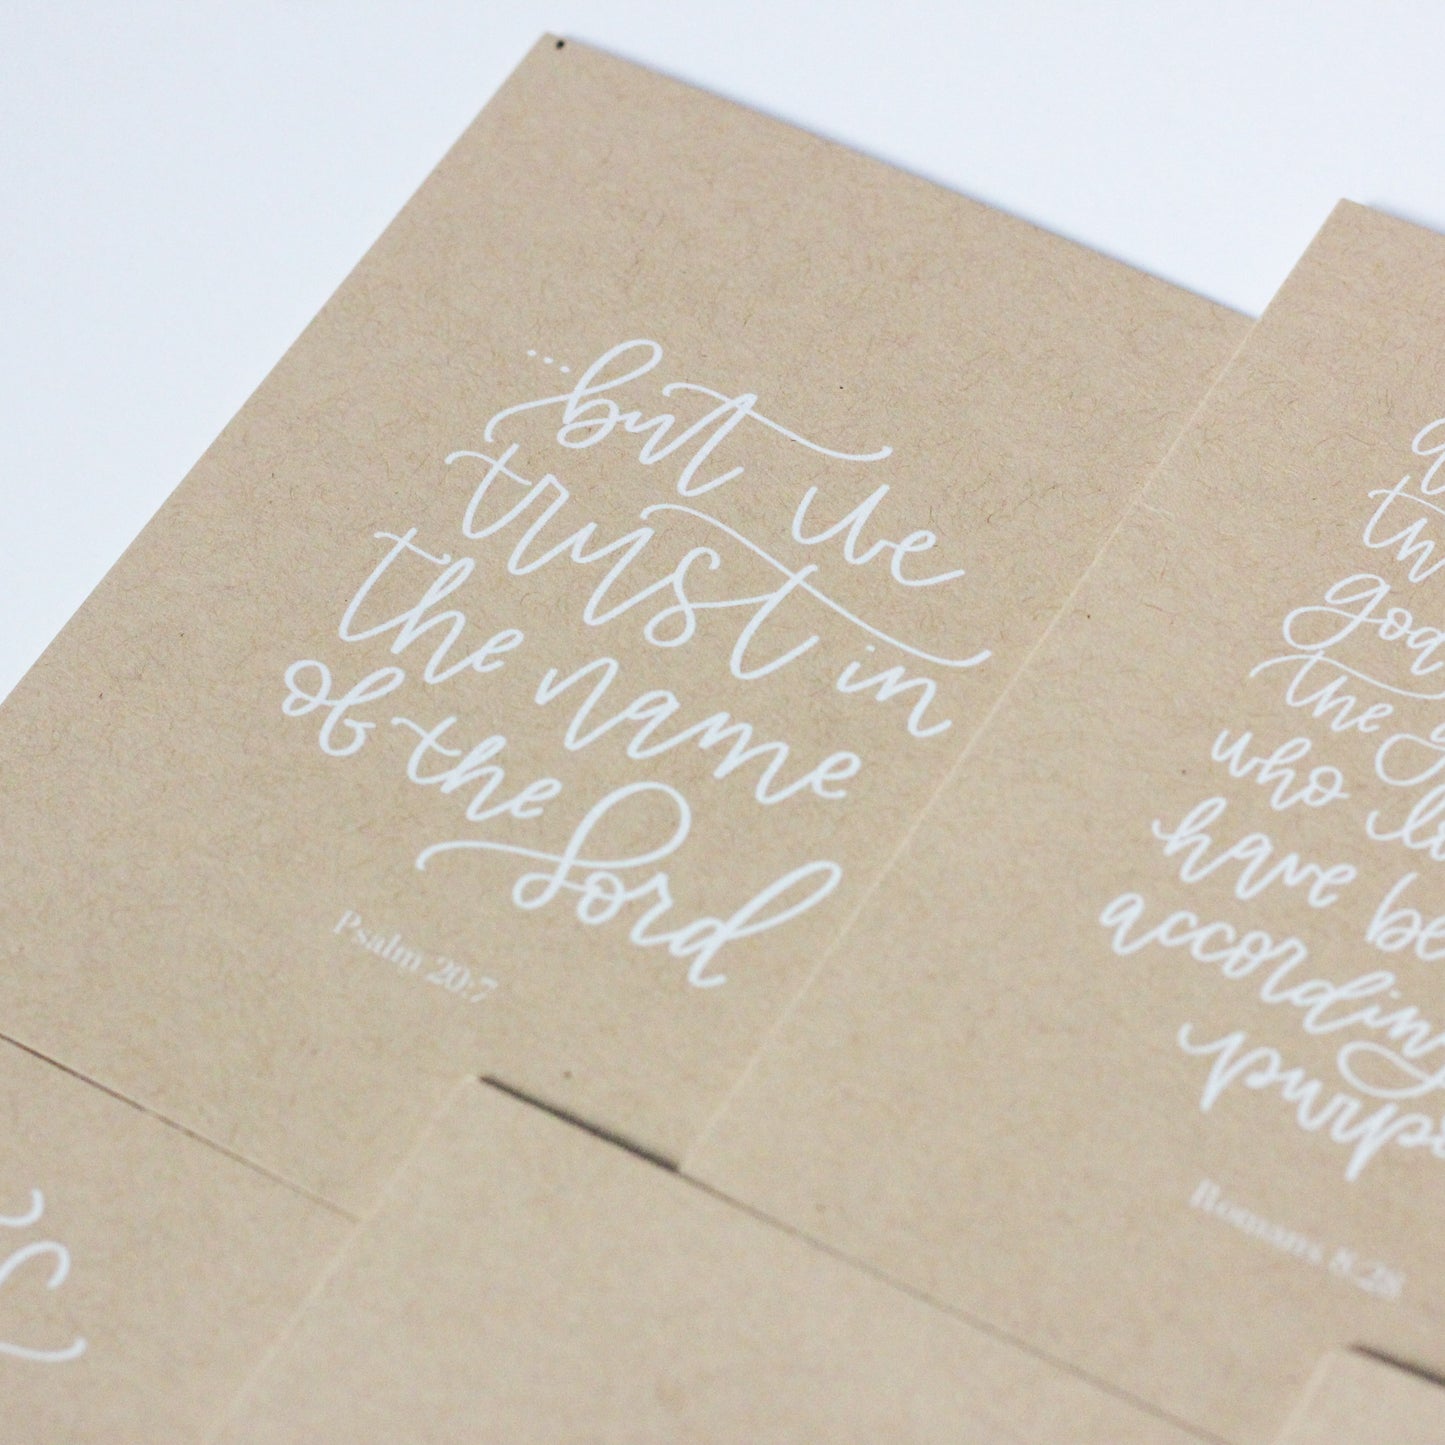 ...but we
trust in
the name
of the Lord
Psalm 20:7
the
who
have
according
Romans 8:28